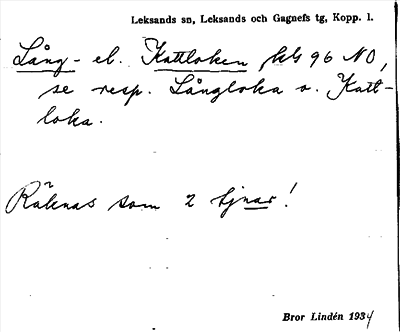 Leksands sn, Leksands och Gagnefs tg, Kopp. l.
Lång- el. Kattloken kbl 96 NO,
se resp. Långloka o. Katt-
loka.
Räknas som 2 tjnar!
Bror Lindén 1934